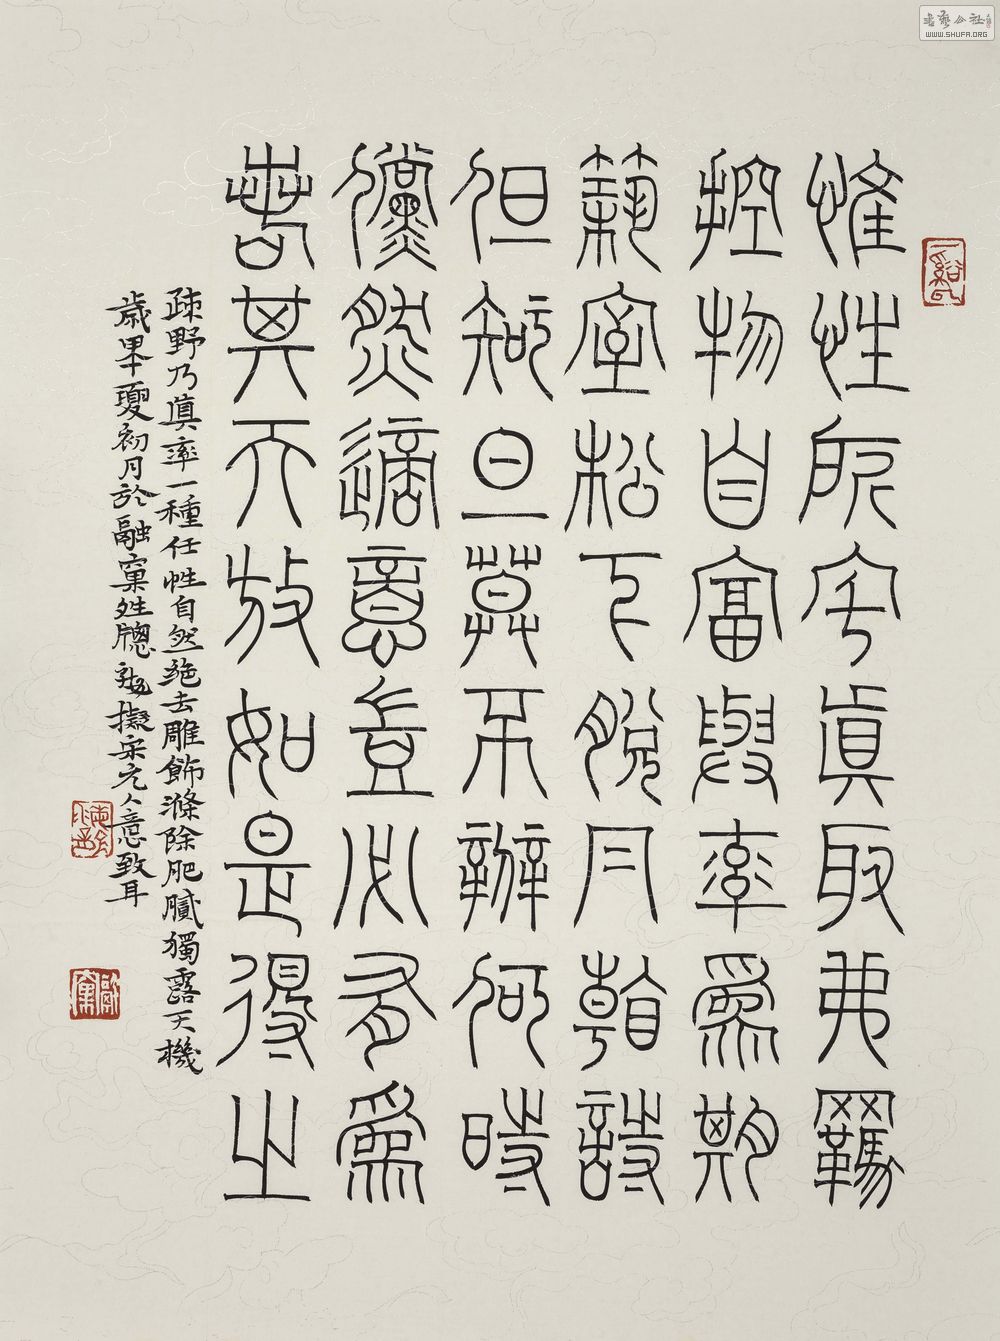 惟性所宅真取弗羈
控物自富與率為期
築室松下脫帽看詩
但知旦暮不辨何時
儻然適意豈必有為
若其天放如是得之
疎野乃真率一種任性自然絕去雕飾滌除肥膩獨露天機
歲畢夏初月於融窠姓牕擬宋元人意致耳
書藝公社
WWW.SHUFA.ORG